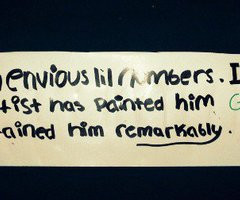 envious lil numbers. I
tist has painted him G
tained him remarkably.